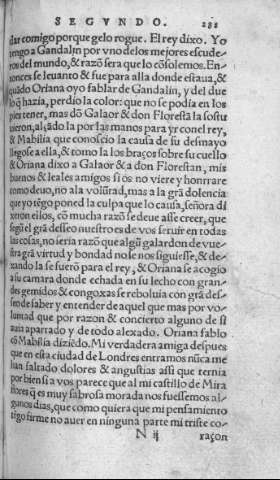 SEGVNDO. 282
dar comigo porque gelo rogue. El rey dixo. Yo
tengo a Gandalin por vno delos mejores escude⸗
ros del mundo, & razõ sera que lo cõsolemos. En⸗
tonces se leuanto & fue para alla donde estaua, &
quãdo Oriana oyo fablar de Gandalin, y del due
lo q̃ hazia, perdio la color: que no se podia en los
pies tener, mas dõ Galaor & don Florestã la sostu
uieron, alçãdo la por las manos para yr con el rey,
& Mabilia que conoscio la causa de su desmayo
llegose a ella, & tomo la los braços sobre su cuello
& Oriana dixo a Galaor & a don Florestan, mis
buenos & leales amigos si os no viere y honrrare
como deuo, no ala volũtad, mas a la grã dolencia
que yo tẽgo poned la culpa que lo causa, señora di
xeron ellos, cõ mucha razõ se deue asse creer, que
segũ el grã desseo nuestro es de vos seruir en todas
las cosas, no seria razõ que algũ galardon de vue⸗
stra grã virtud y bondad no se nos siguiesse, & de⸗
xando la se fuerõ para el rey, & Oriana se acogio
a su camara donde echada en su lecho con gran⸗
des gemidos & congoxas se reboluia con grã des⸗
seo de saber y entender de aquel que mas por vo⸗
luntad que por razon & concierto alguno de si
auia apartado y de todo alexado. Oriana fablo
cõ Mabilia diziẽdo. Mi verdadera amiga despues
que en esta ciudad de Londres entramos nũca me
han faltado dolores & angustias assi que ternia
por bien si a vos parece que al mi castillo de Mira
flores q̃ es muy sabrosa morada nos fuessemos al⸗
gunos dias, que como quiera que mi pensamiento
tẽgo firme no auer en ninguna parte mi triste co⸗
N ij raçon